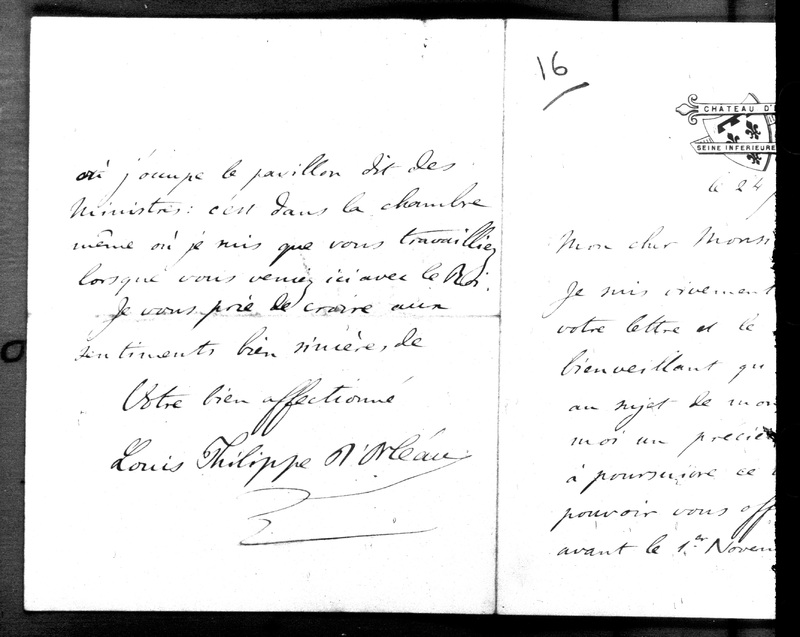 où j'occupe le pavillon dit des
Ministres: c'est dans la chambre
même où je suis que vous travailliez
lorsque vous veniez ici avec le Roi.
Je vous prie de croire aux
sentiments bien sincères de
Votre bien affectionné
Louis Philippe d'Orléans
16
CHATEAU D'E
SEINE INFERIEURE
le 24
Mon cher Monsi
Je suis vivement
votre lettre et le
bienveillant qu
au sujet de mon
moi un précie
à poursuivre ce
pouvoir vous off
avant le 1er Novem